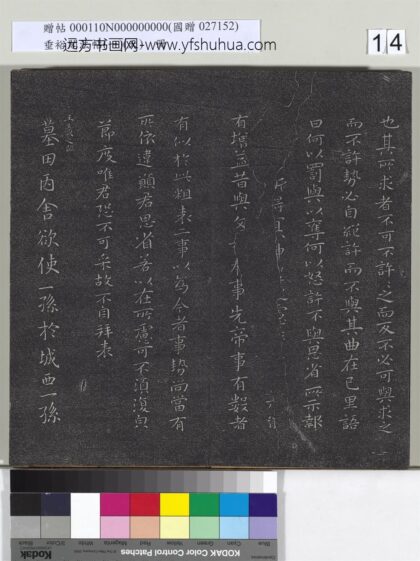 贈帖 000110N000000000(國贈 027152)
远方书画网-www.yfshuhua.com
14
也其所求者不可不許之而反不必可與求之
而不許勢必自絕許而不與其曲在己里語
曰何以罰與以奪何以怒許不與思省所示報
有增益昔與文事先帝事有數者
有似於此粗表二事以為今者事勢尚當有
所依違願君思省若以在所慮可不須復與
節度唯君恐不可采故不自拜表
墓田丙舍欲使一孫於城西一孫
KODAK Color Control Patches
Blue
Cyan
Green
Yellow
Red
Magenta
White
3/Color
Black